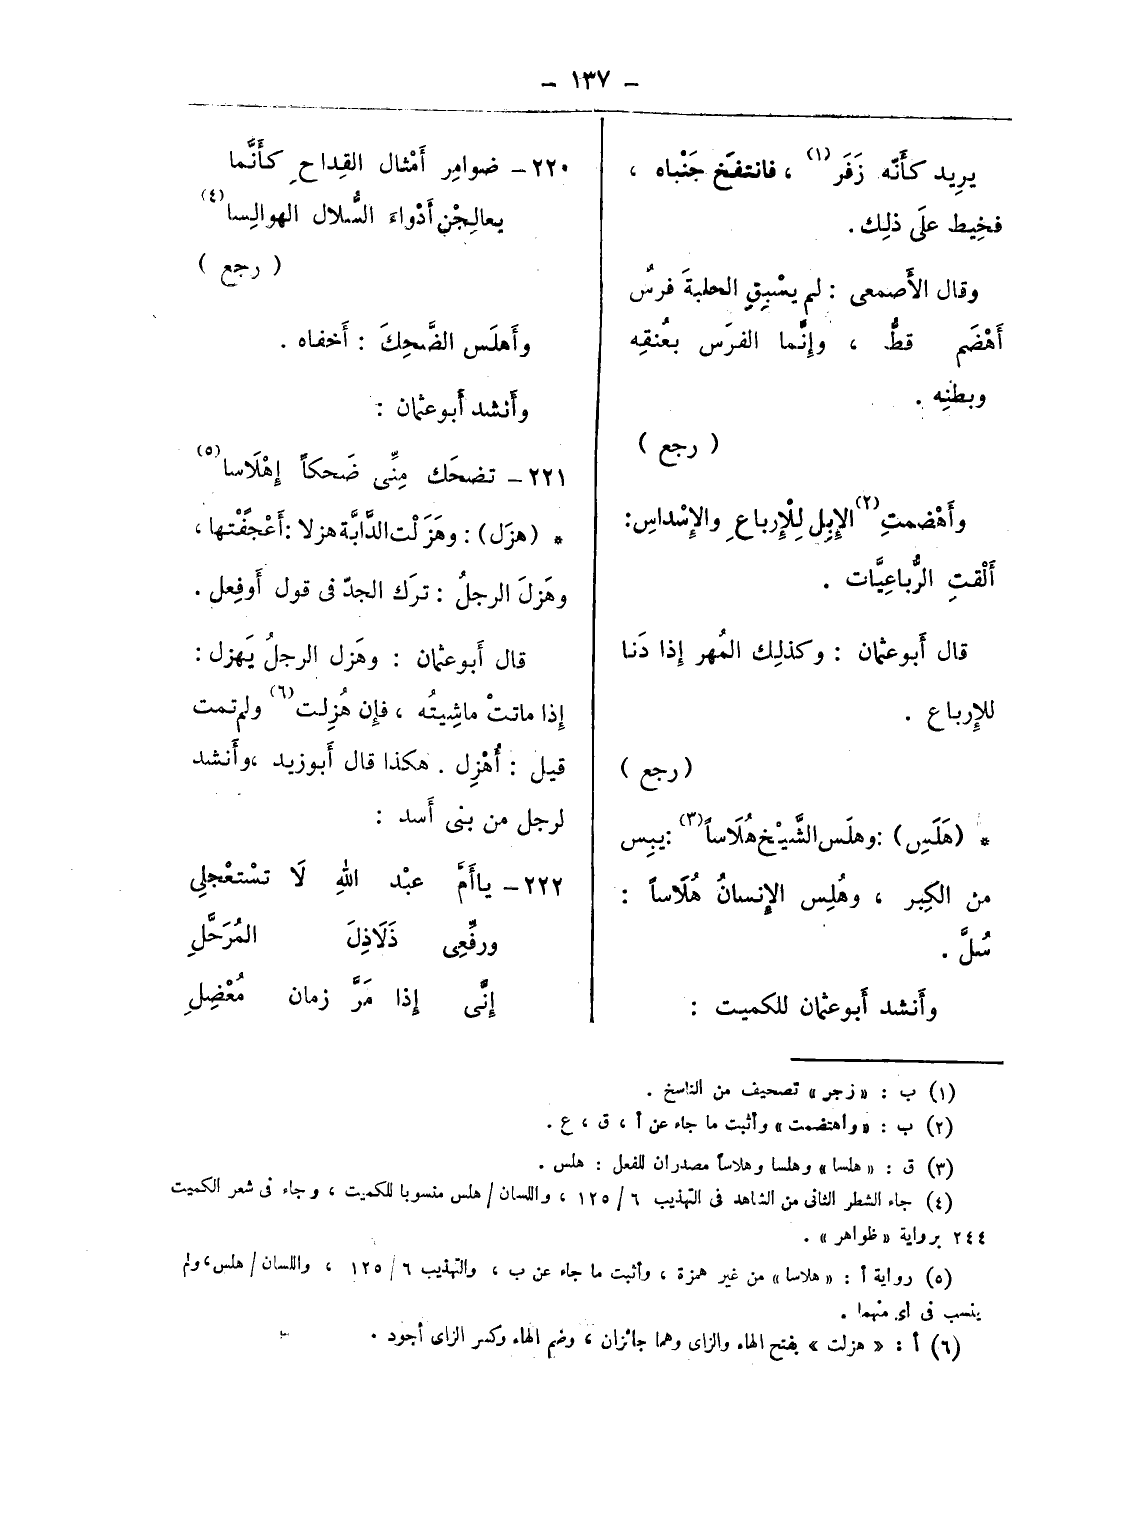 – ١٣٧ –
يرِيد كأَنّه زَفَر(١) ، فانتفَخ جَنْباه ،
فخِيط علَى ذلِك .
وقال الأَصمعى : لم يسْبِقِ الحلبةَ فرسٌ
أَهْضَم قطُّ ، وإِنَّما الفرَس بعُنقِه
وبطنِه .
( رجع )
وأَهْضمتِ(٢) الإِبِل لِلْإِرباعِ والإِسْداسِ:
أَلْقتِ الرُّباعِيَّات .
قال أَبوعثمان : وكذلِك المُهر إِذا دَنا
للإِرباع .
( رجع )
* (هَلَسِ) : وهلَس الشَّيْخ هُلَاساً(٣) : يبِس
من الكِبر ، وهُلِس الإِنسانُ هُلَاساً :
سُلَّ .
وأَنشد أَبوعثمان للكميت :
٢٢٠ – ضوامِر أَمْثال القِداحِ كأَنَّما
يعالِجْن أَدْواءَ السُّلال الهوالِسا(٤)
( رجع )
وأَهلَس الضَّحِكَ : أَخفاه .
وأَنشد أَبوعثمان :
٢٢١ – تضحَك مِنِّى ضَحكاً إِهْلَاسا(٥)
* (هزَل) : وهَزَلْت الدَّابَّة هزلا : أَعْجَفْتها ،
وهَزلَ الرجلُ : ترَك الجدّ فى قول أَوفِعل .
قال أَبوعثمان : وهَزل الرجلُ يَهزل :
إِذا ماتتْ ماشِيتُه ، فإِن هُزِلت(٦) ولم تمت
قيل : أُهْزِل . هكذا قال أَبوزيد ، وأَنشد
لرجل من بنى أَسد :
٢٢٢ – ياأَمَّ عبْد اللهِ لَا تسْتعْجلِى
ورفِّعِى ذَلَاذِلَ المُرَحَّلِ
إِنَّى إِذا مَرَّ زمان مُعْضِلِ
(١) ب : « زجر » تصحيف من الناسخ .
(٢) ب : « واهتضمت » وأثبت ما جاء عن أ ، ق ، ع .
(٣) ق : « هلسا » وهلسا وهلاساً مصدران للفعل : هلس .
(٤) جاء الشطر الثانى من الشاهد فى التهذيب ٦ / ١٢٥ ، واللسان / هلس منسوبا للكميت ، وجاء فى شعر الكميت
٢٤٤ برواية « ظواهر » .
(٥) رواية أ : « هلاسا » من غير همزة ، وأثبت ما جاء عن ب ، والتهذيب ٦ / ١٢٥ ، واللسان / هلس ، ولم
ينسب فى أى منهما .
(٦) أ : « هزلت » بفتح الهاء والزاى وهما جائزان ، وضم الهاء وكسر الزاى أجود .